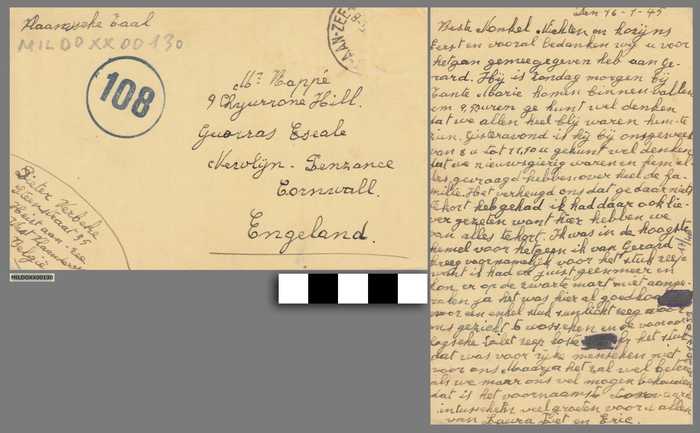 Vlaamsche Taal
MILDOXX00130
108
AAN-ZEE
Mr Nappé
9 Chyurrone Hill.
Guorras Eseale
Newlijn - Penzance
Cornwall.
Engeland.
Pieter
35
Heist aan Zee
West Vlaanderen
België
MILDOXX00130
Den 16-1-45
Beste Nonkel Nichten en kozijns
Eerst en vooral bedanken wij u voor
hetgeen gemeegegeven heb aan Ge-
rard. Hij is Zondag morgen bij
Tante Marie komen binnen vallen
om 9,30 uren ge kunt wel denken
dat we allen heel blij waren hem te
zien. Gisteravond is hij bij ons geweest
van 8 u tot 11,40 u ge kunt wel denken
dat we nieuwsgierig waren en hem al
les gevraagd hebben over heel de fa-
milie. Het verheugd ons dat ge daar niets
te kort heb gehad ik had daar ook lie-
ver gezeten want hier hebben we
van alles te kort. Ik was in de hoogste
hemel voor hetgeen ik van Gerard
kreeg voornamelijk voor het stuk zeep
want ik had de juist geen meer en
kon er op de zwarte mart niet aange-
raken ja het was hier al goedkoop
voor een enkel stuk sunlicht zeep voor
ons gezicht te wasschen en de vooroor
logsche toilet zeep koste het stuk
dat was voor rijke menschen niet
voor ons Maar ja het zal wel beteren
als we maar ons vel mogen behouden
dat is het voornaamste
intusschen veel groeten voor u allen
van Laura Piet en Eric.